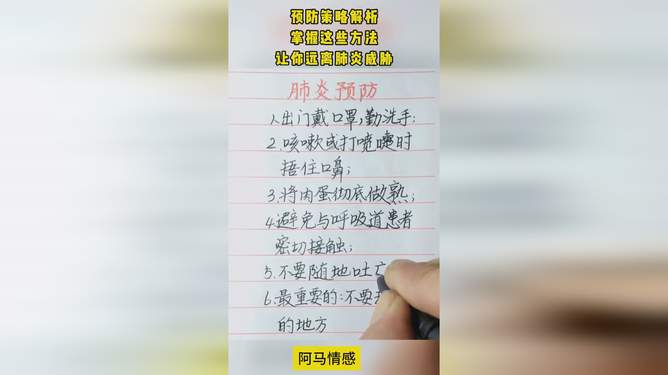 预防策略解析
掌握这些方法
让你远离肺炎威胁
肺炎预防
1.出门戴口罩,勤洗手;
2.咳嗽或打喷嚏时
捂住口鼻;
3.将肉蛋彻底做熟;
4.避免与呼吸道患者
密切接触;
5.不要随地吐
6.最重要的:不要
的地方
阿马情感